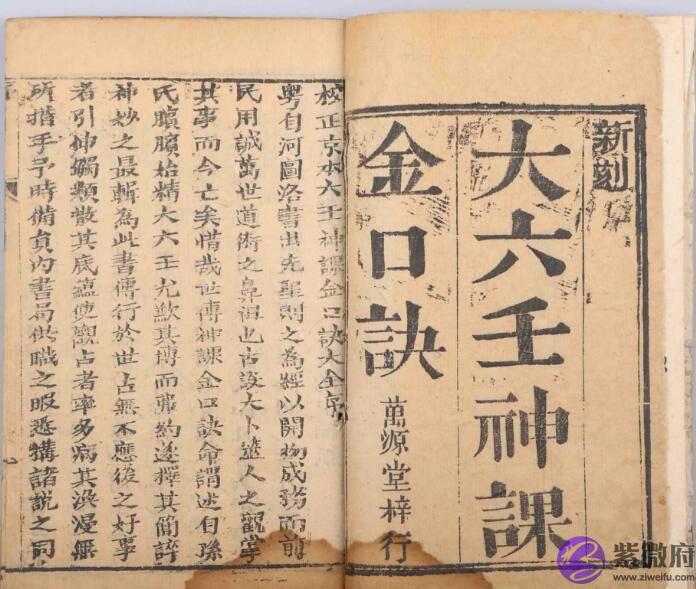 新刻
大六壬神課
金口訣
萬源堂梓行
校正京本六壬神課金口訣大全序
粵自河圖洛書出先聖則之為經以開物成務而前
民用誠萬世道術之鼻祖也古設大卜筮人之觀掌
其事而今亡矣惜哉世傳神課金口訣命謂述自孫
氏臏臏始精大六壬尤歎其博而弗約遂擇其簡
神妙之最輯為此書傳行於世占無不應後之好事
者引伸觸類散其底蘊使觀占者率多病其渙漫無
所措手予時備負內書局供職之暇遂搆諸說之同
紫微府
www.ziweifu.com